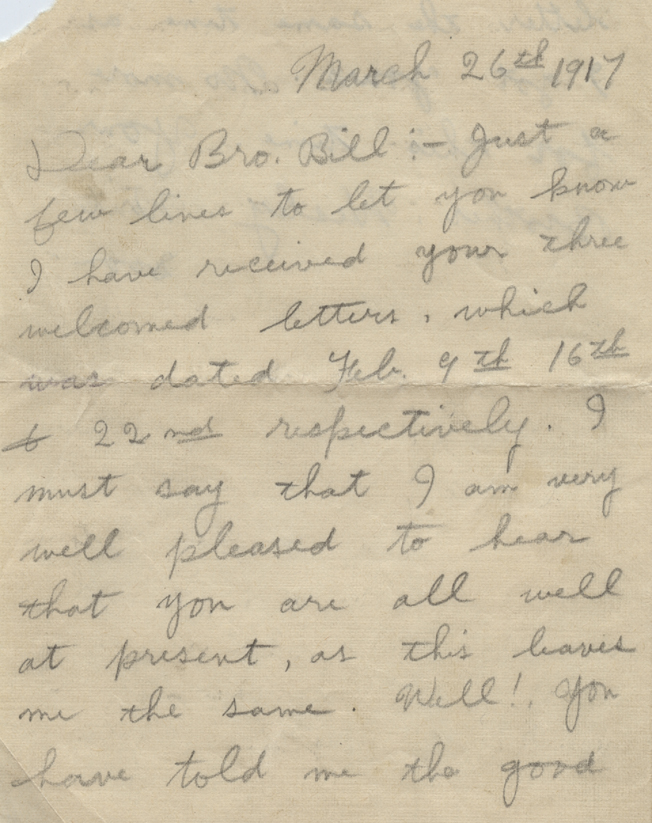 March 26th 1917
Dear Bro. Bill :- Just a
few lines to let you know
I have received your three
welcomed letters, which
was dated Feb. 9th 16th
& 22nd respectively. I
must say that I am very
well pleased to hear
that you are all well
at present, as this leaves
me the same. Well! You
have told me the good